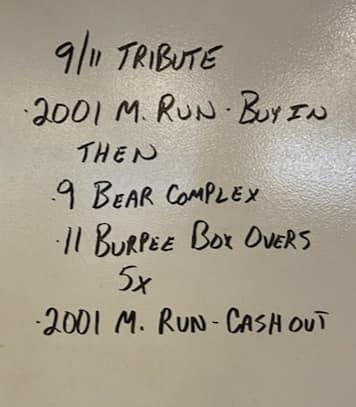 9/11 TRIBUTE
·2001 M. RUN - BUY IN
THEN
·9 BEAR COMPLEX
·11 BURPEE BOX OVERS
5X
·2001 M. RUN - CASH OUT